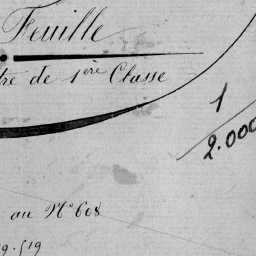 Feuille
tre de 1ère Classe
1
2.000
au N° 608
9.519